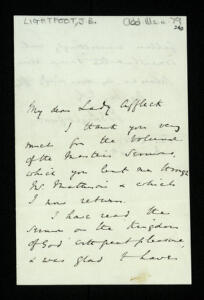 LIGHTFOOT, J.B.
Add Ms a 79
My dear Lady Affleck
I thank you very
much for the volume
of the Master's Sermons,
which you lent me through
Mr Mathison & which
I now return.
I have read the
Sermon on the Kingdom
of God with great pleasure,
& was glad to have